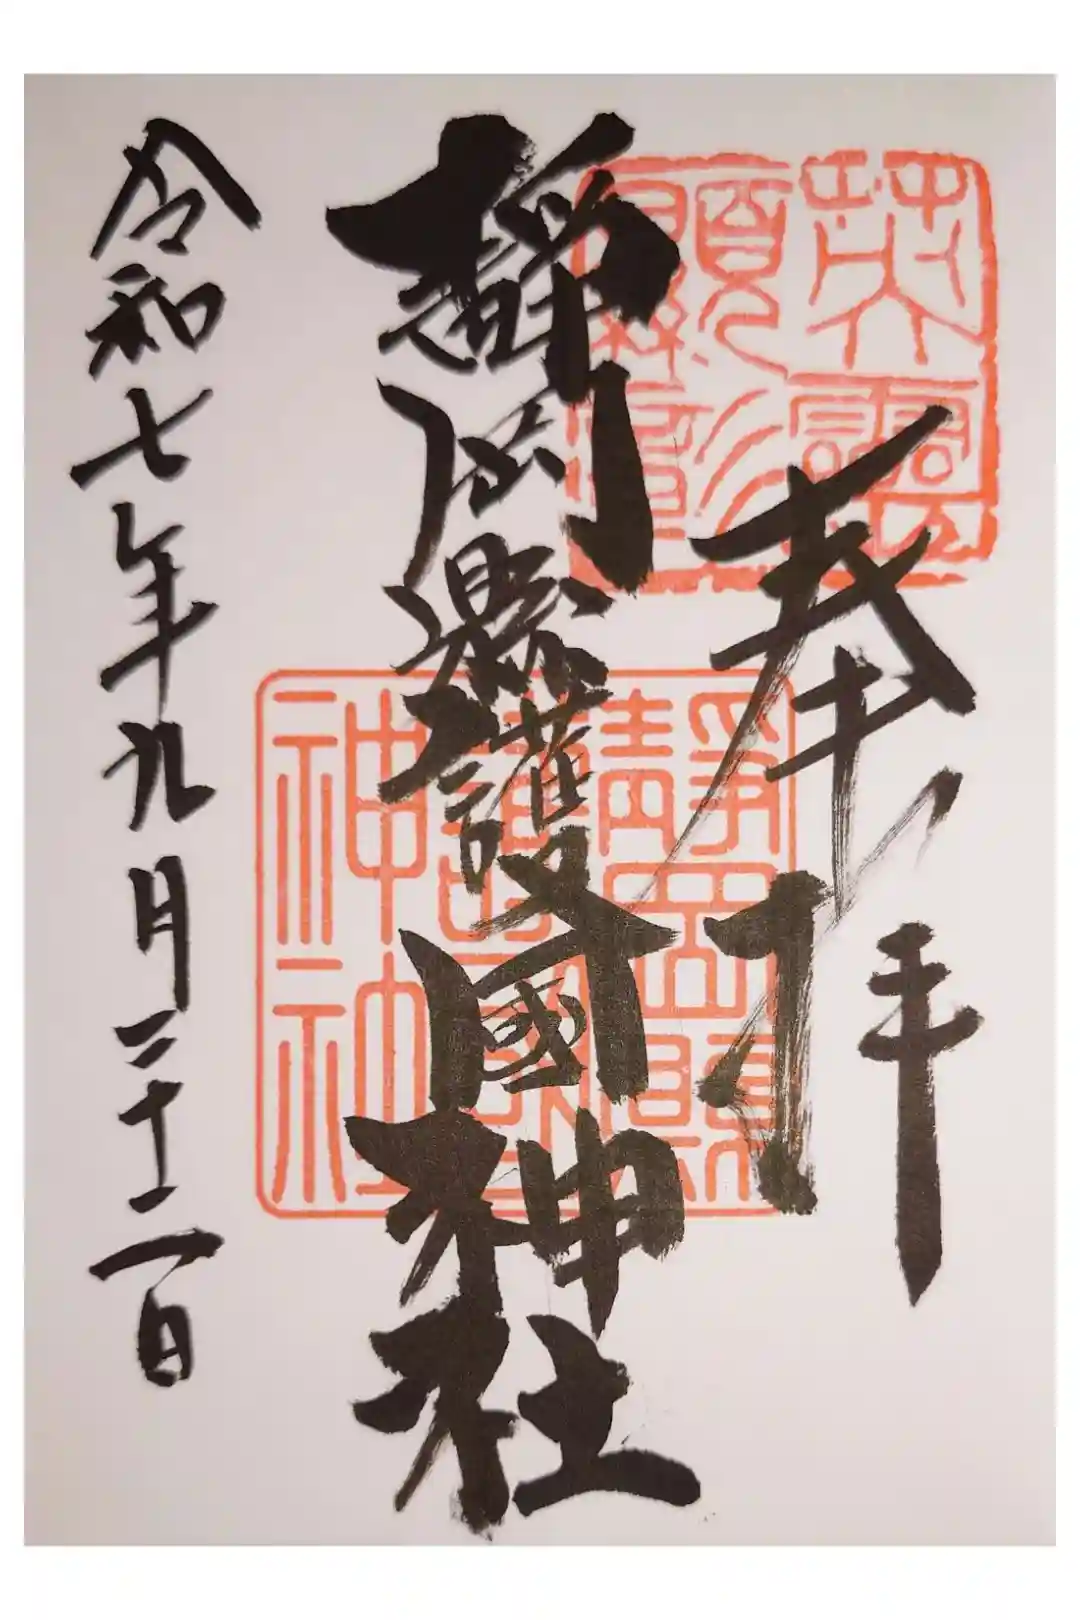 奉拝
靜岡縣護國神社
令和七年九月二十一日
靜岡縣護國神社